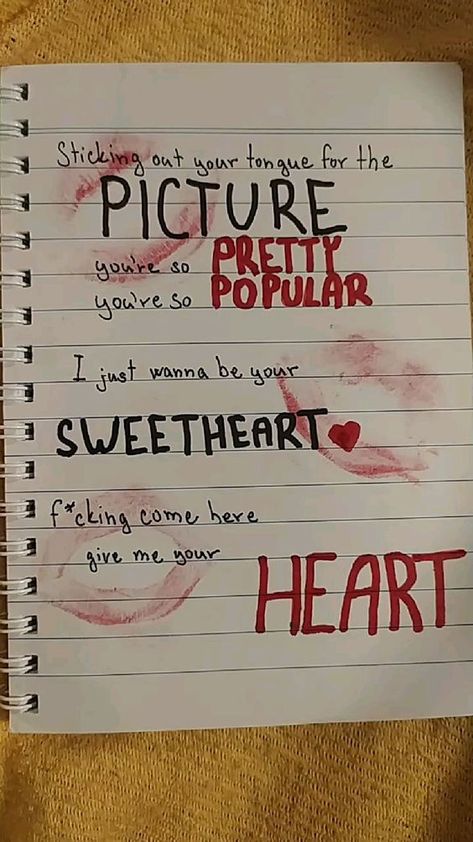 Sticking out your tongue for the
PICTURE
you're so PRETTY
you're so POPULAR
I just wanna be your
SWEETHEART
f*cking come here
give me your
HEART